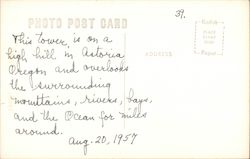 39.
PHOTO POST CARD
This tower is on a
high hill in Astoria
Oregon and overlooks
the surrounding
mountains, rivers, bays,
and the Ocean for miles
around.
Aug. 20, 1957
ADDRESS